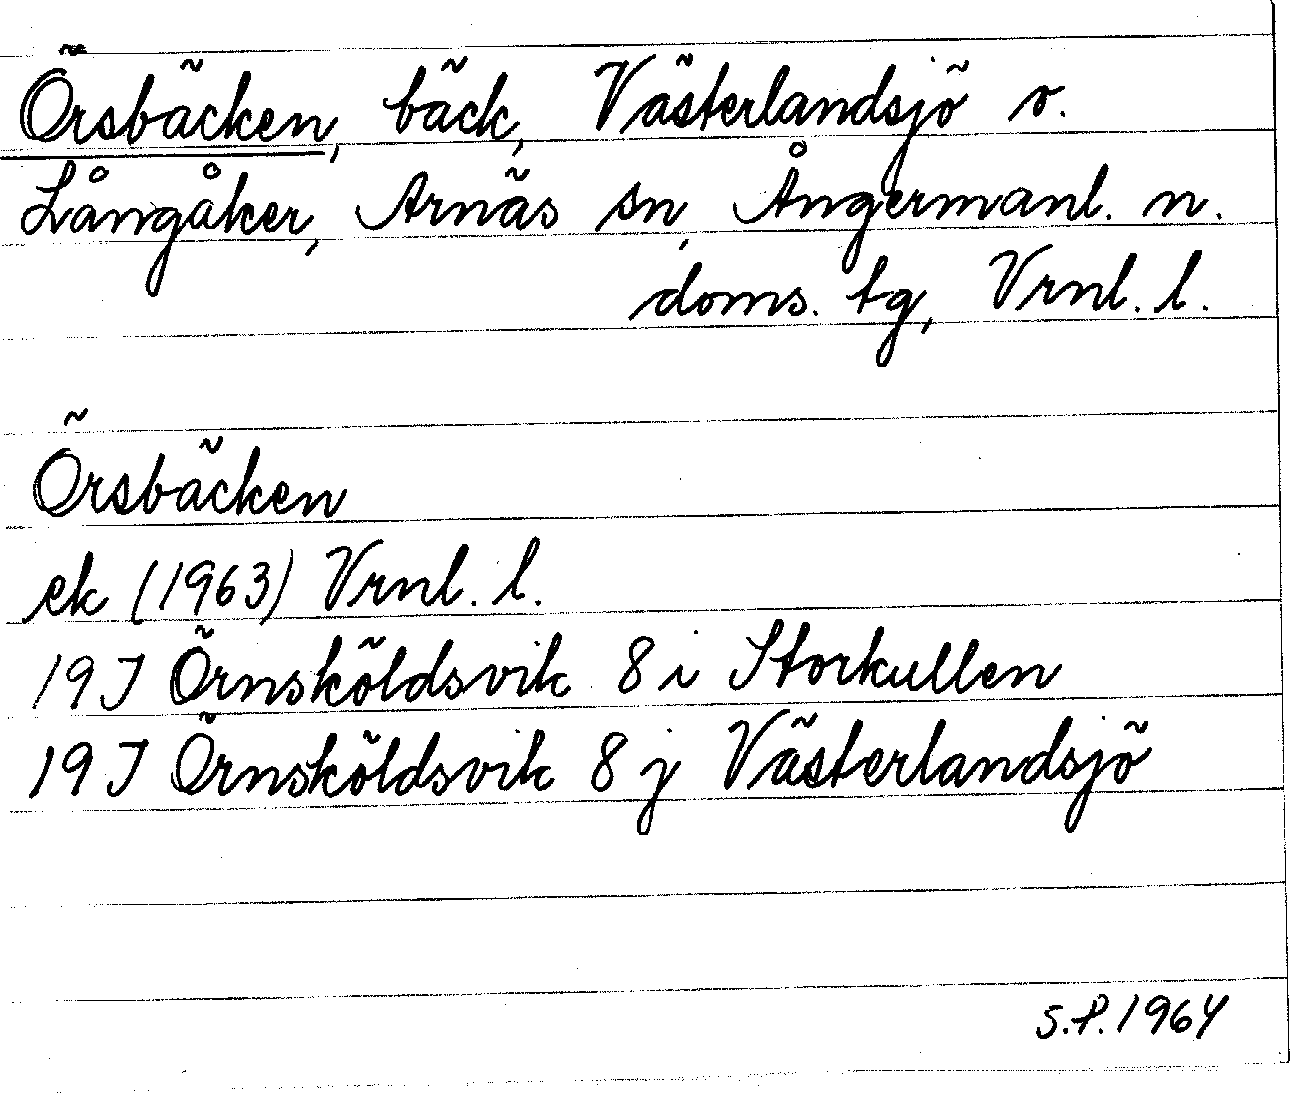 Örsbäcken, bäck, Västerlandsjö o.
Långåker, Arnäs sn, Ångermanl. n.
doms. tg, Vrnl. l.
Örsbäcken
ek (1963) Vrnl. l.
19J Örnsköldsvik 8 i Storkullen
19J Örnsköldsvik 8 j Västerlandsjö
S.P. 1964